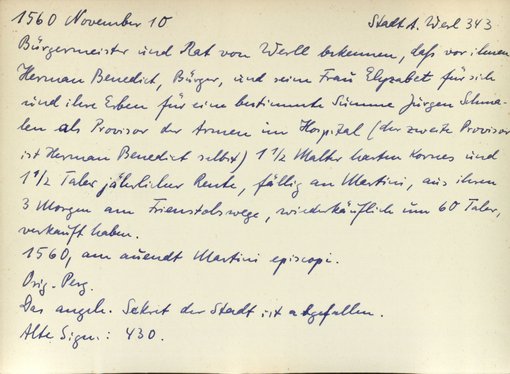 1560 November 10 Stadt A. Werl 343
Bürgermeister und Rat von Werll bekennen, daß vor ihnen
Herman Benedict, Bürger, und seine Frau Elyzabet für sich
und ihre Erben für eine bestimmte Summe Jürgen Schma-
len als Provisor der Armen im Hospital (der zweite Provisor
ist Herman Benedict selbst) 1 1/2 Malter harten Kornes und
1 1/2 Taler jährlicher Rente, fällig an Martini, aus ihren
3 Morgen am wiederkäuflich um 60 Taler,
verkauft haben.
1560, am auendt Martini episcopi.
Orig. Perg.
Das angeh. Sekret der Stadt ist abgefallen.
Alte Sign.: 430.